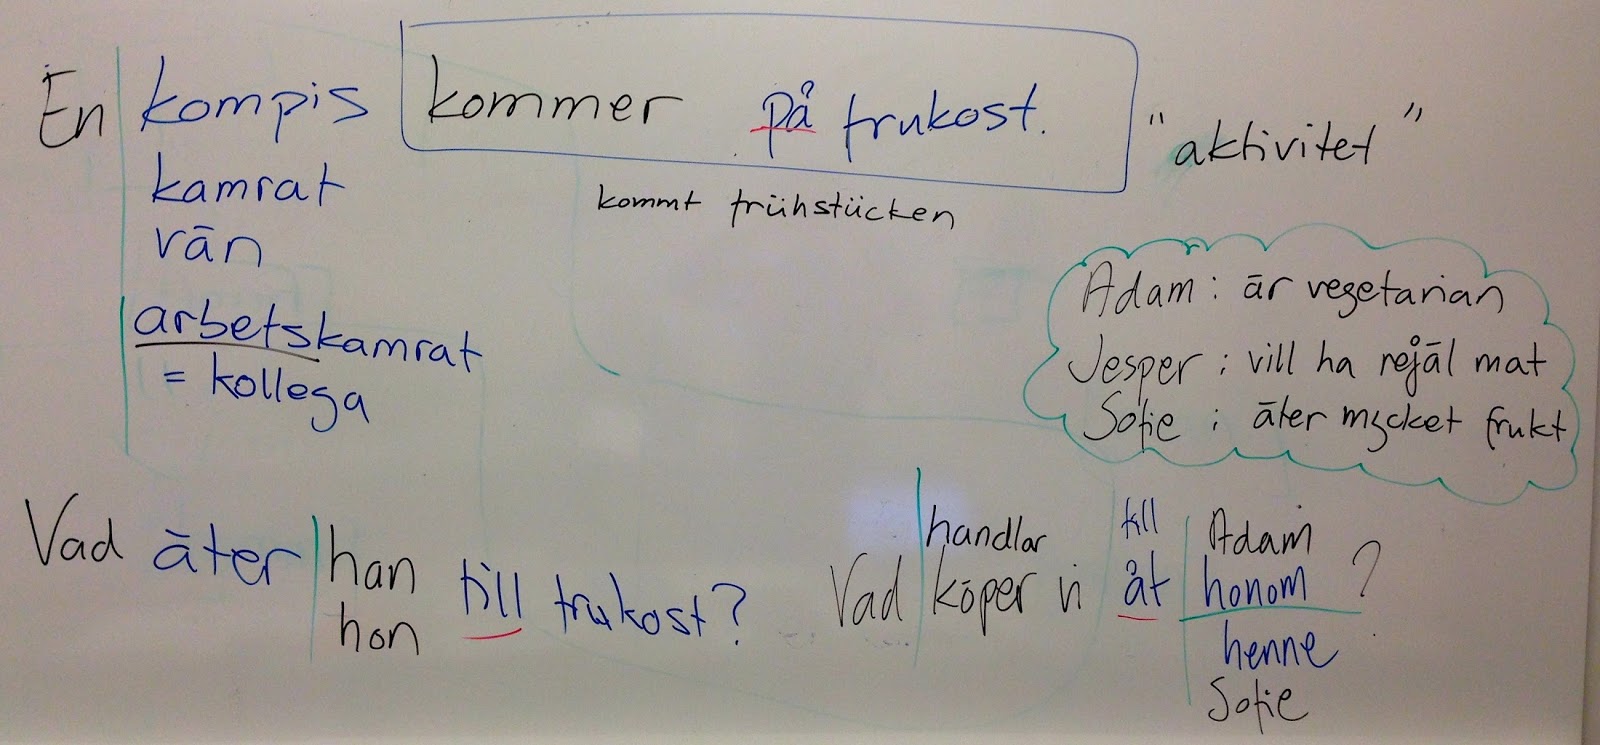 En kompis kommer på frukost. "aktivitet"
kamrat
kommt frühstücken
vän
arbetskamrat
= kollega
Adam: är vegetarian
Jesper: vill ha rejäl mat
Sofie: äter mycket frukt
Vad äter han till frukost?
hon
handlar till Adam
Vad köper vi åt honom?
henne
Sofie